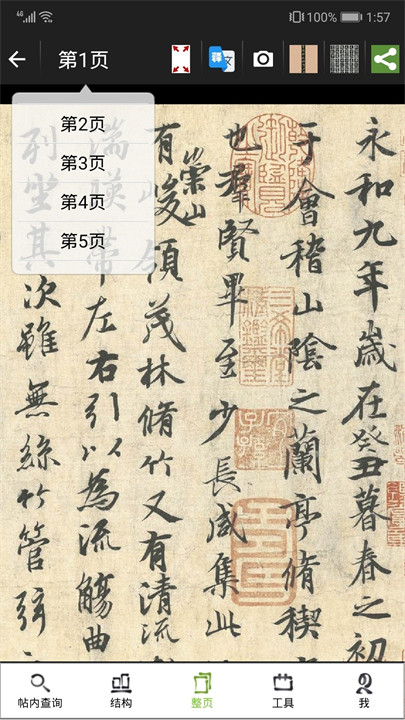 4G 100% 1:57
第1页
释 文
第2页
第3页
第4页
第5页
永和九年歲在癸丑暮春之初
于會稽山陰之蘭亭脩禊
也羣賢畢至少長咸集此
有崇山峻領茂林脩竹又有清流
湍暎帶左右引以為流觴曲
列坐其次雖無絲竹管弦
帖内查询
结构
整页
工具
我